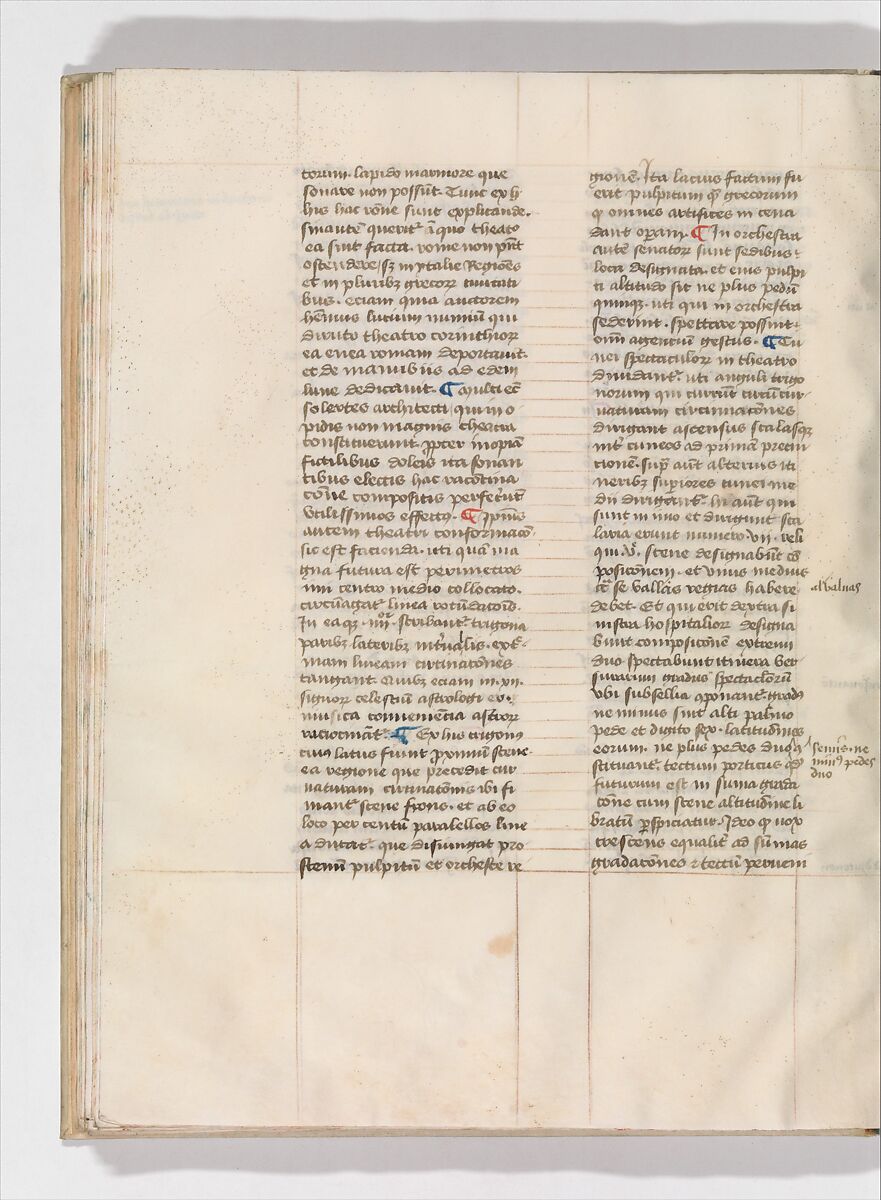 torum. lapido marmore que
sonare non possūt. Tunc ex h
his hac rōne sunt explicande.
sinautē querit̄ ī quo theatͦ
ea sint facta. rome non pn̄t
ostendere sꝫ in ytalie Regiōēs
et in pluribꝫ grecoꝝ ciuitati
bus. eciam quia auctorem
hēmus lucium numiū qui
diruto theatro corinthioꝝ
ea enea romam deportauit.
et de manubius ad edem
lune dedicauit. ¶ multi ec̄
solertes architecti qui in o
pidis non magnis theatra
constituerunt ꝓpter inopiā
fictilibus doleis ita sonan
tibus electis hac racōtina
cōne compositis perfecer̄ut
vtilissimos effectꝯ. ¶ Ipīus
autem theatri conformacō
sic est facienda. uti quā ma
gna futura est perimetros
imi centro medio collocato.
circūagat̄ linea rotūdacōīs.
In eaqꝫ iiij scribant̄ trigona
paribꝫ lateribꝫ
mam lineam circinacōnes
tangant. Quibꝫ eciam in xij.
signoꝝ celestiū astrologi ex.
musica conueniēcia astroꝝ
raciocinant̄. ¶ Ex his trigonis
cuiꝰ latus fiunt ꝓximū scene.
ea regione que precedit cur
uaturam circinacōnis ibi fi
niant̄ scene frons. et ab eo
loco per centū paralellos line
a ducat̄. que disiungat pro
scenii pulpitū et orcheste re
gionē. Ita lacius factum fu
erit pulpitum qͣ grecorum
ꝙ omnes artifices in cena
dant oꝑam. ¶ In orchestra
autē senatoꝝ sunt sedibus.
loca designata. et eius pulpi
ti altitudo sit ne plus pedū
quinqꝫ. uti qui in orchestra
sederint. spectare possint.
oīm agenciū gestus. ¶ Cu
nei spectaculoꝝ in theatro
diuidant̄. uti anguli trigo
norum qui currūt circū cur
uaturam circinacōnes
dirigant ascensus scalasqꝫ
int̄ cuneos ad primā precin
cionē. supᵃ aūt alterius iti
neribꝫ suꝑiores cunei me
dii dirigent̄. hi aūt qui
sunt in imo et dirigunt sca
laria erunt numero vij. reli
qui vͦ. scene designabūt cō
posicōnem. et vnus medius
cͣ se vallas regias habere
debet. Et qui erit dextra si
nistra hospitalioꝝ designa
bunt composicōnē extremi
duo spectabunt itinera ver
surarum gradus spectaclorū
vbi subsellia oponant̄ gradꝯ
ne minus sint alti palmo
pede et digito sex. latitudines
eorum. ne plus pedes duos
stituant̄ tectum porticus qd̄
futurum est in suma grada
cōne cum scene altitudine li
bratū ꝑspiciatur. Ideo ꝙ uox
crescens equalit̄ ad sūmas
gradacōnes ⁊ tectū peruem
al valuas
semis. ne
minꝰ pedes
duo